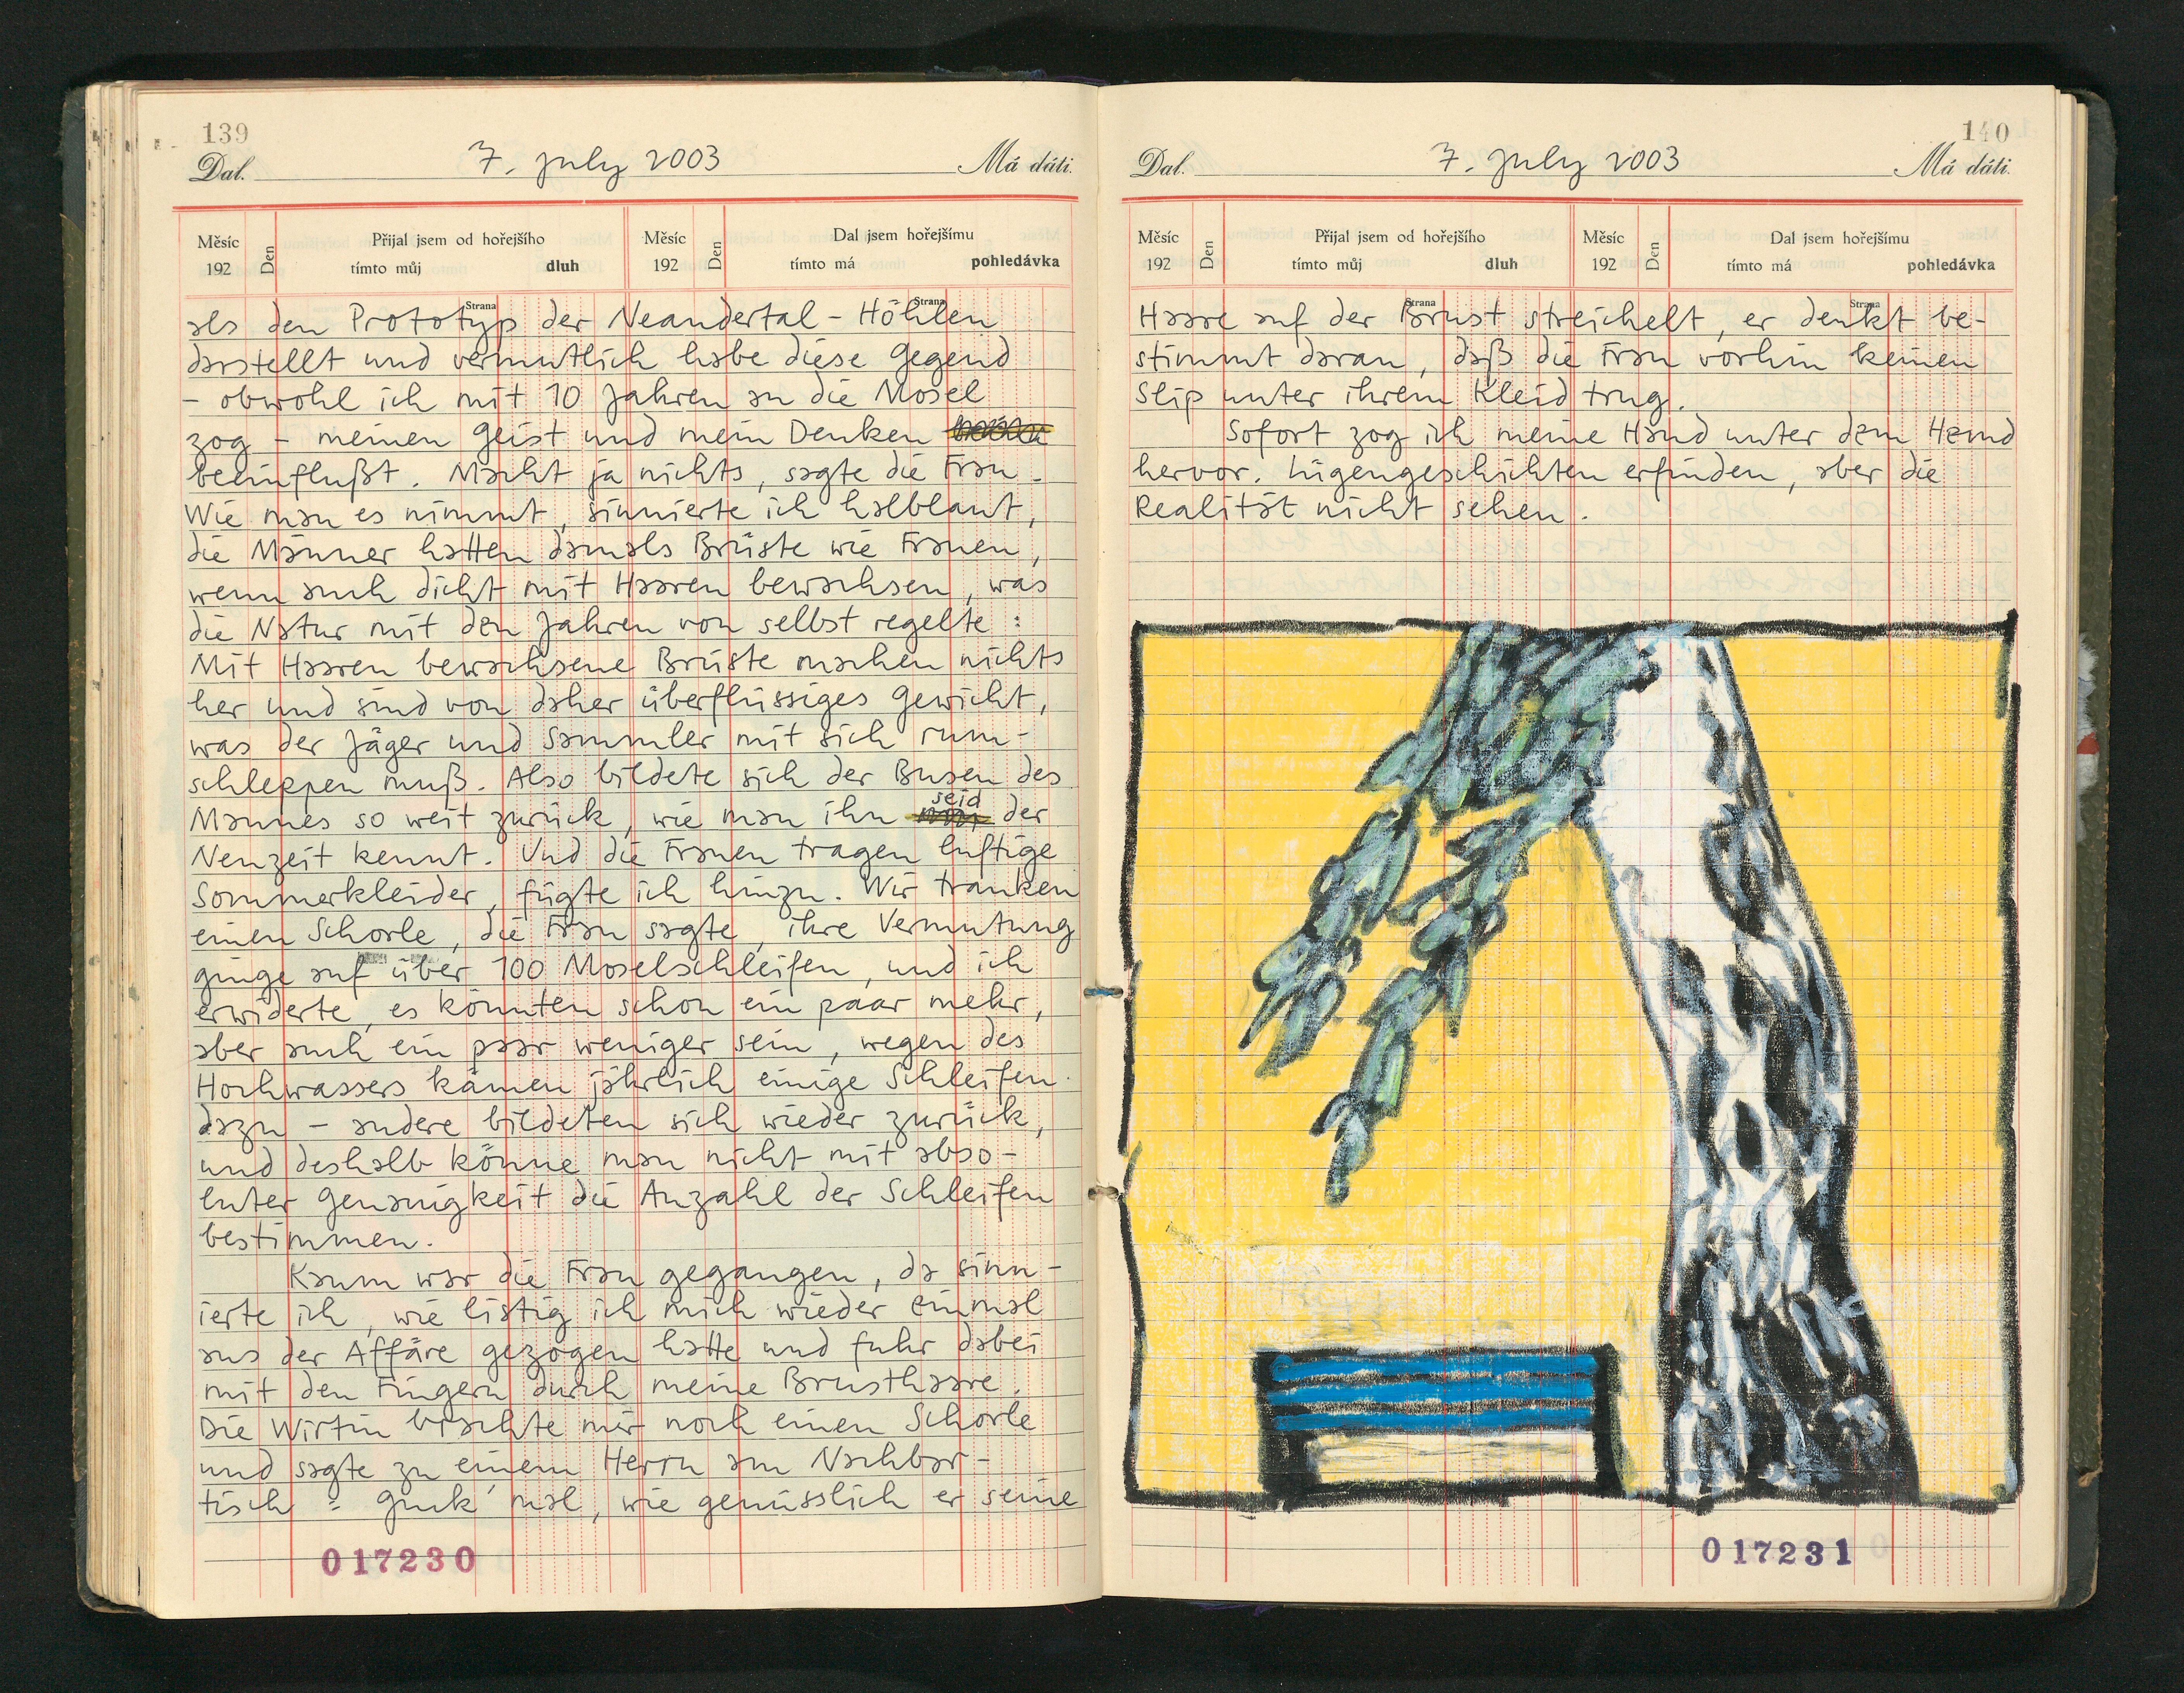 139
Dal. 7. July 2003 Má dáti.
Měsíc 192 Den Přijal jsem od hořejšího tímto můj dluh Měsíc 192 Den Dal jsem hořejšímu tímto má pohledávka
Strana Strana
als den Prototyp der Neandertal-Höhlen
darstellt und vermutlich habe diese Gegend
- obwohl ich mit 10 Jahren an die Mosel
zog - meinen Geist und mein Denken
beeinflußt. Macht ja nichts, sagte die Frau.
Wie man es nimmt, sinnierte ich halblaut,
die Männer hatten damals Brüste wie Frauen,
wenn auch dicht mit Haaren bewachsen, was
die Natur mit den Jahren von selbst regelte:
Mit Haaren bewachsene Brüste machen nichts
her und sind von daher überflüssiges Gewicht,
was der Jäger und Sammler mit sich rum-
schleppen muß. Also bildete sich der Busen des
Mannes so weit zurück, wie man ihn seid der
Neuzeit kennt. Und die Frauen tragen luftige
Sommerkleider, fügte ich hinzu. Wir tranken
einen Schorle, die Frau sagte, ihre Vermutung
ginge auf über 100 Moselschleifen, und ich
erwiderte, es könnten schon ein paar mehr,
aber auch ein paar weniger sein, wegen des
Hochwassers kämen jährlich einige Schleifen
dazu - andere bildeten sich wieder zurück,
und deshalb könne man nicht mit abso-
luter Genauigkeit die Anzahl der Schleifen
bestimmen.
Kaum war die Frau gegangen, da sinn-
ierte ich, wie listig ich mich wieder einmal
aus der Affäre gezogen hatte und fuhr dabei
mit den Fingern durch meine Brusthaare.
Die Wirtin brachte mir noch einen Schorle
und sagte zu einem Herrn am Nachbar-
tisch: Guck mal, wie genüsslich er seine
017230
140
Dal. 7. July 2003 Má dáti.
Měsíc 192 Den Přijal jsem od hořejšího tímto můj dluh Měsíc 192 Den Dal jsem hořejšímu tímto má pohledávka
Strana Strana
Haare auf der Brust streichelt, er denkt be-
stimmt daran, daß die Frau vorhin keinen
Slip unter ihrem Kleid trug.
Sofort zog ich meine Hand unter dem Hemd
hervor. Lügengeschichten erfinden, aber die
Realität nicht sehen.
017231